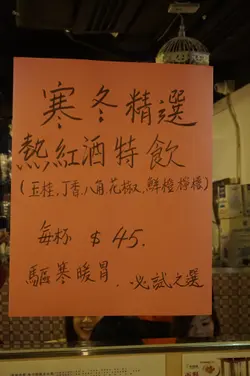 寒冬精選
熱紅酒特飲
(玉桂,丁香,八角,花椒,鮮橙,檸檬)
每杯 $45.
驅寒暖胃 . 必試之選